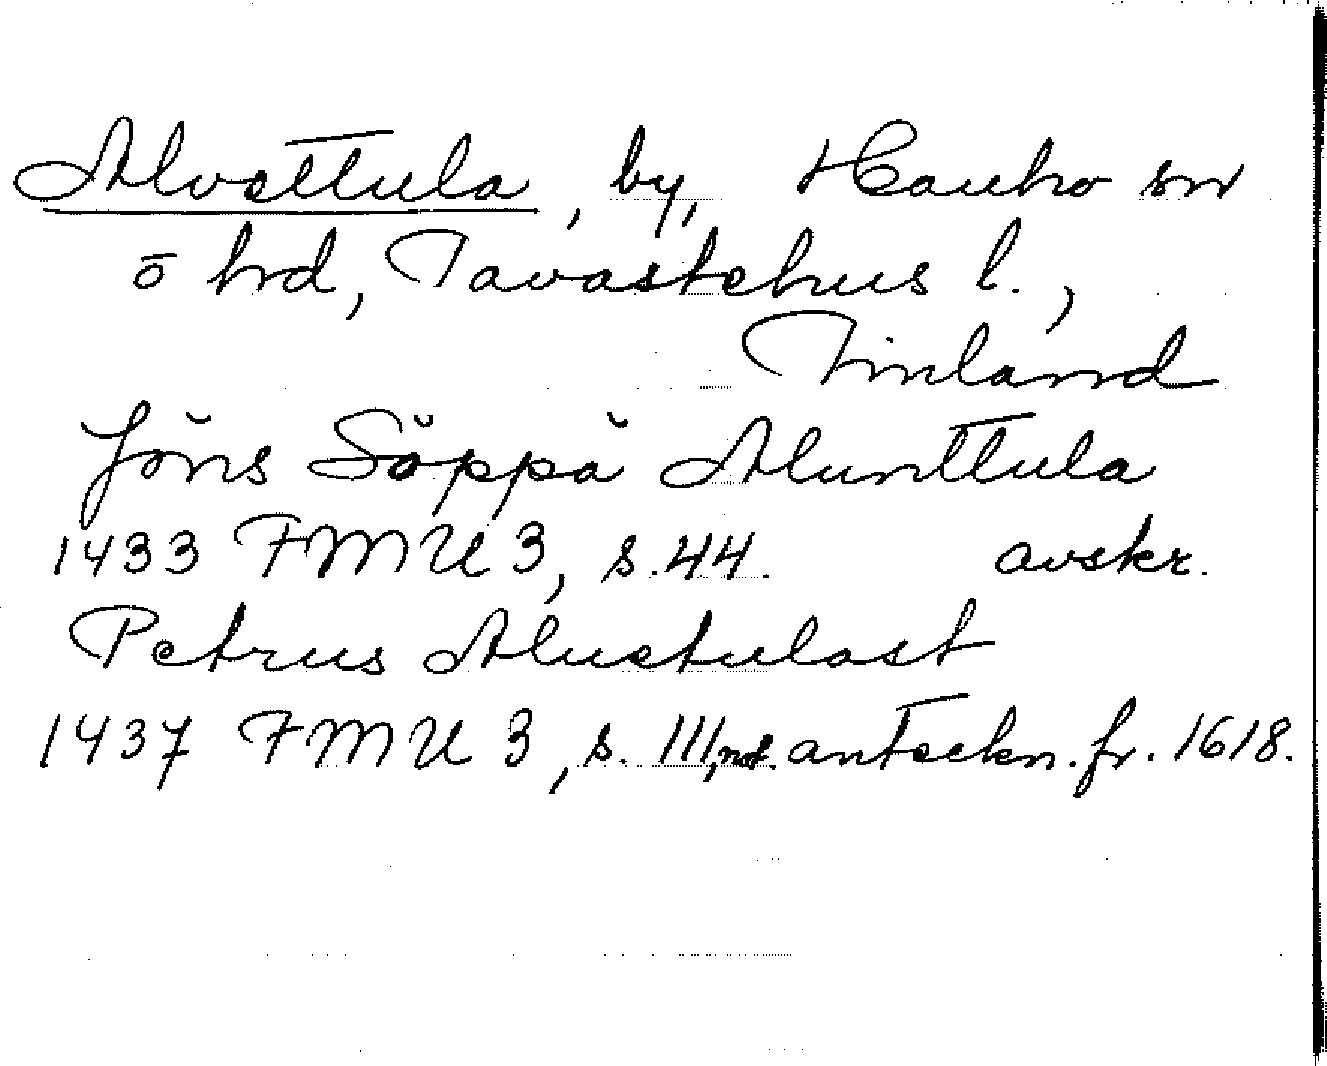 Alvettula, by, Hauho sn
ö hd, Tavastehus l.,
Finland
Jöns Söppä Alunttula
1433 FMU 3, s. 44. avskr.
Petrus Aluetulast
1437 FMU 3, s. 111, not. anteckn. fr. 1618.